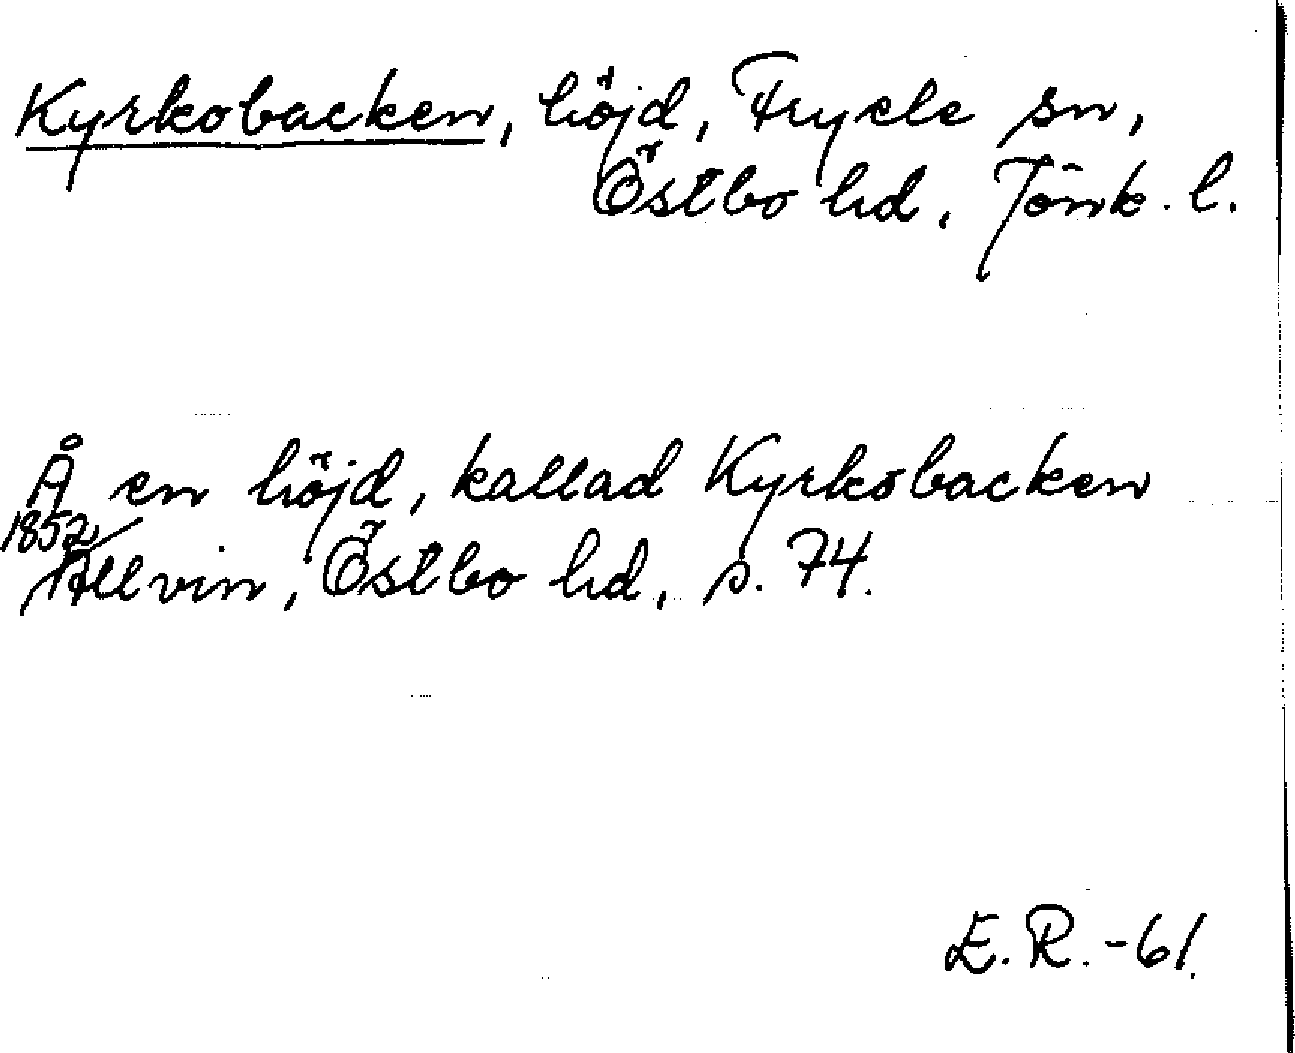 Kyrkobacken, höjd, Fryele sn,
Östbo hd, Jönk. l.
Å en höjd, kallad Kyrkobacken
1852/
Allvin, Östbo hd, s. 74.
E.R. -61.